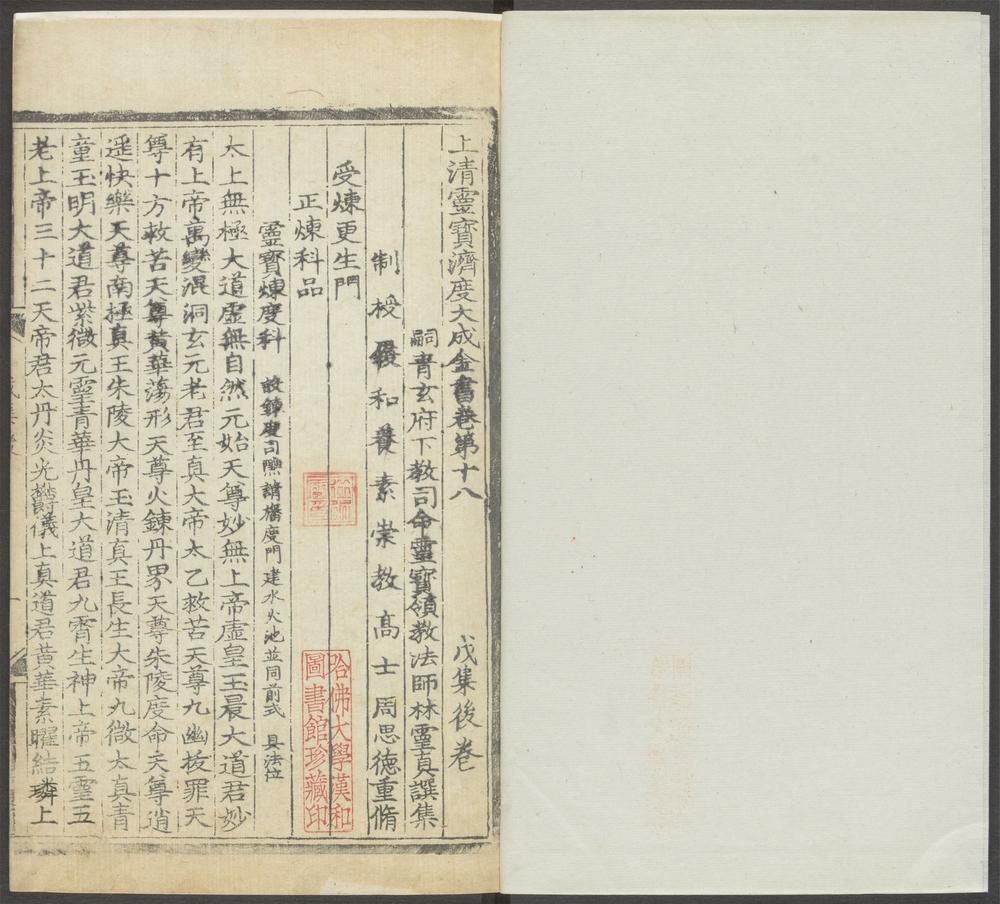 上清靈寶濟度大成金書卷第十八 戊集後卷
嗣青玄府下教司命靈寶領教法師林靈真譔集
制授履和養素崇教高士周思德重脩
受煉更生門
正煉科品
靈寶煉度科 故鍊度司熙請旛度門建水火池並同前式 具法位
太上無極大道虛無自然元始天尊妙無上帝虛皇玉晨大道君妙
有上帝萬變混洞玄元老君至真大帝太乙救苦天尊九幽拔罪天
尊十方救苦天尊黃華蕩形天尊火鍊丹界天尊朱陵度命天尊逍
遥快樂天尊南極真王朱陵大帝玉清真王長生大帝九微太真青
童玉明大道君紫微元靈青華丹皇大道君九霄生神上帝五靈五
老上帝三十二天帝君太丹炎光欝儀上真道君黃華素曜結璘上
哈佛大學漢和
圖書館珍藏印